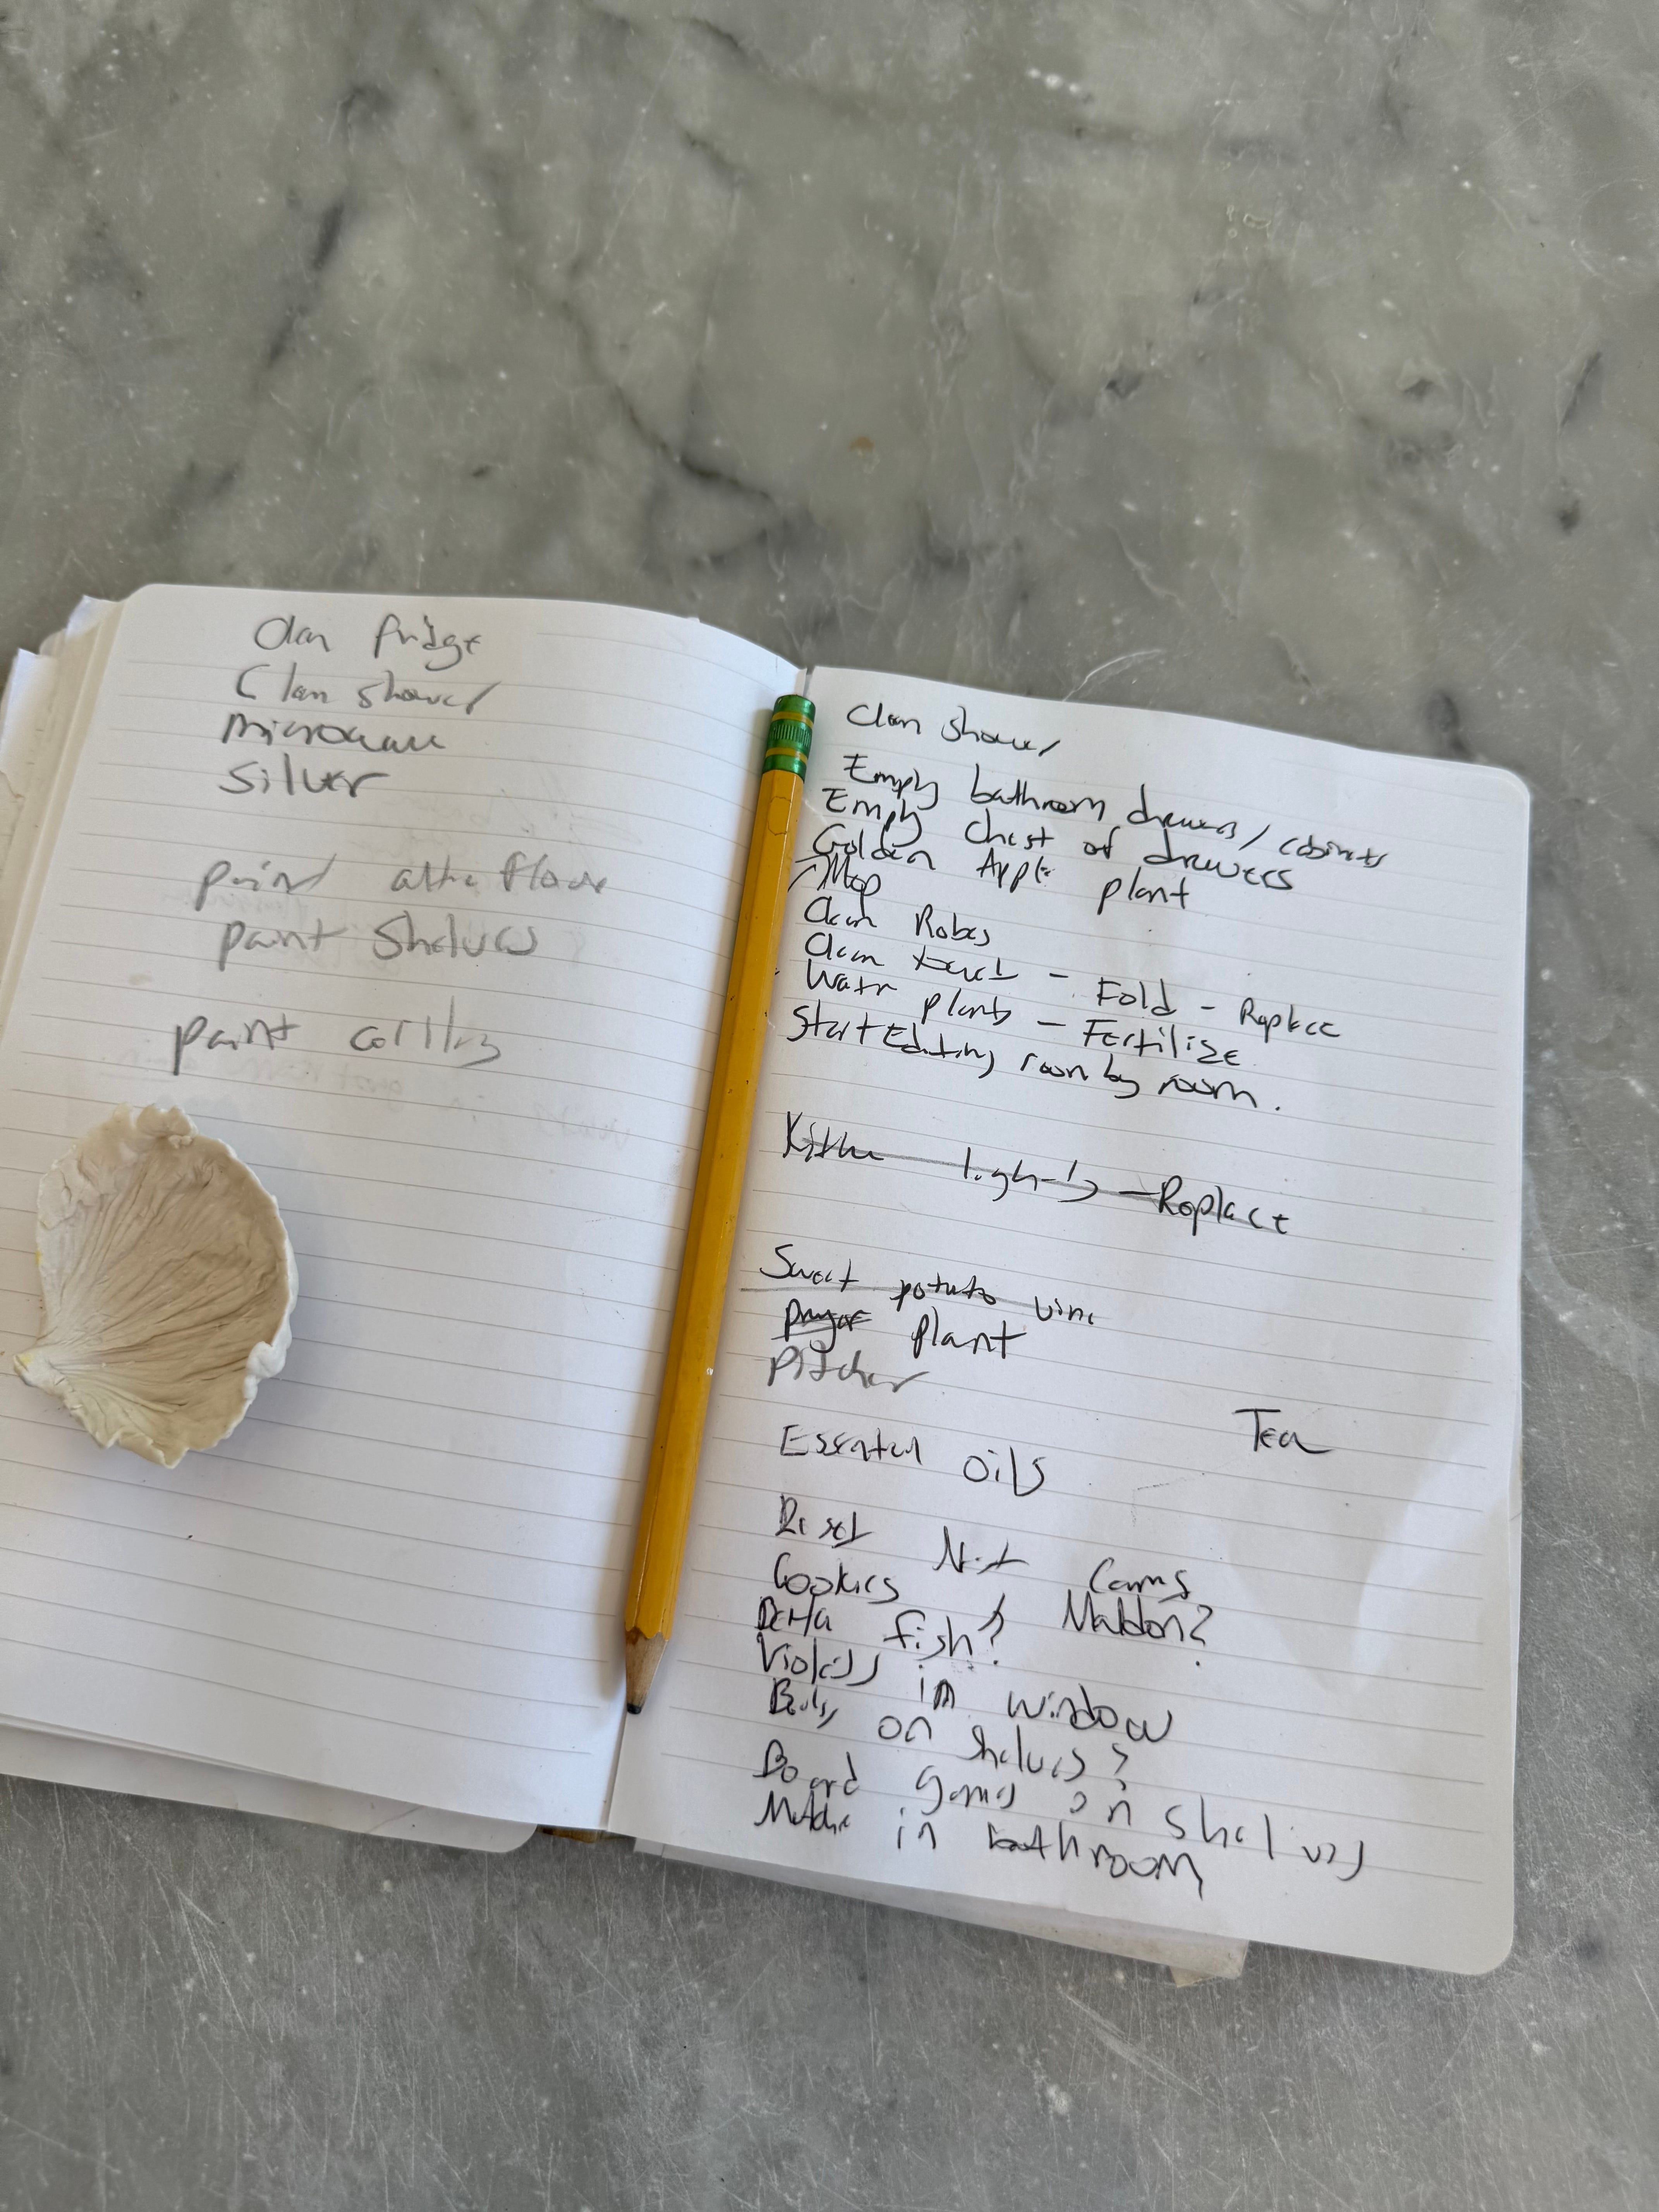 Clean fridge
Clean shower
microwave
Silver
paint attic floor
paint shelves
paint
Clean Shower
Empty bathroom drawers / cabinets
Empty Chest of drawers
Golden Apple plant
Mop
Clean Robes
Clean - Fold - Replace
Water plants - Fertilize
Start Editing room by room.
Kitchen lights - Replace
Sweet potato vine
prayer plant
Pitcher
Tea
Essential oils
Reset Nest Cams
Cookies Maldon?
Betta fish?
Violets in window
on shelves?
Board games on shelves
in bathroom